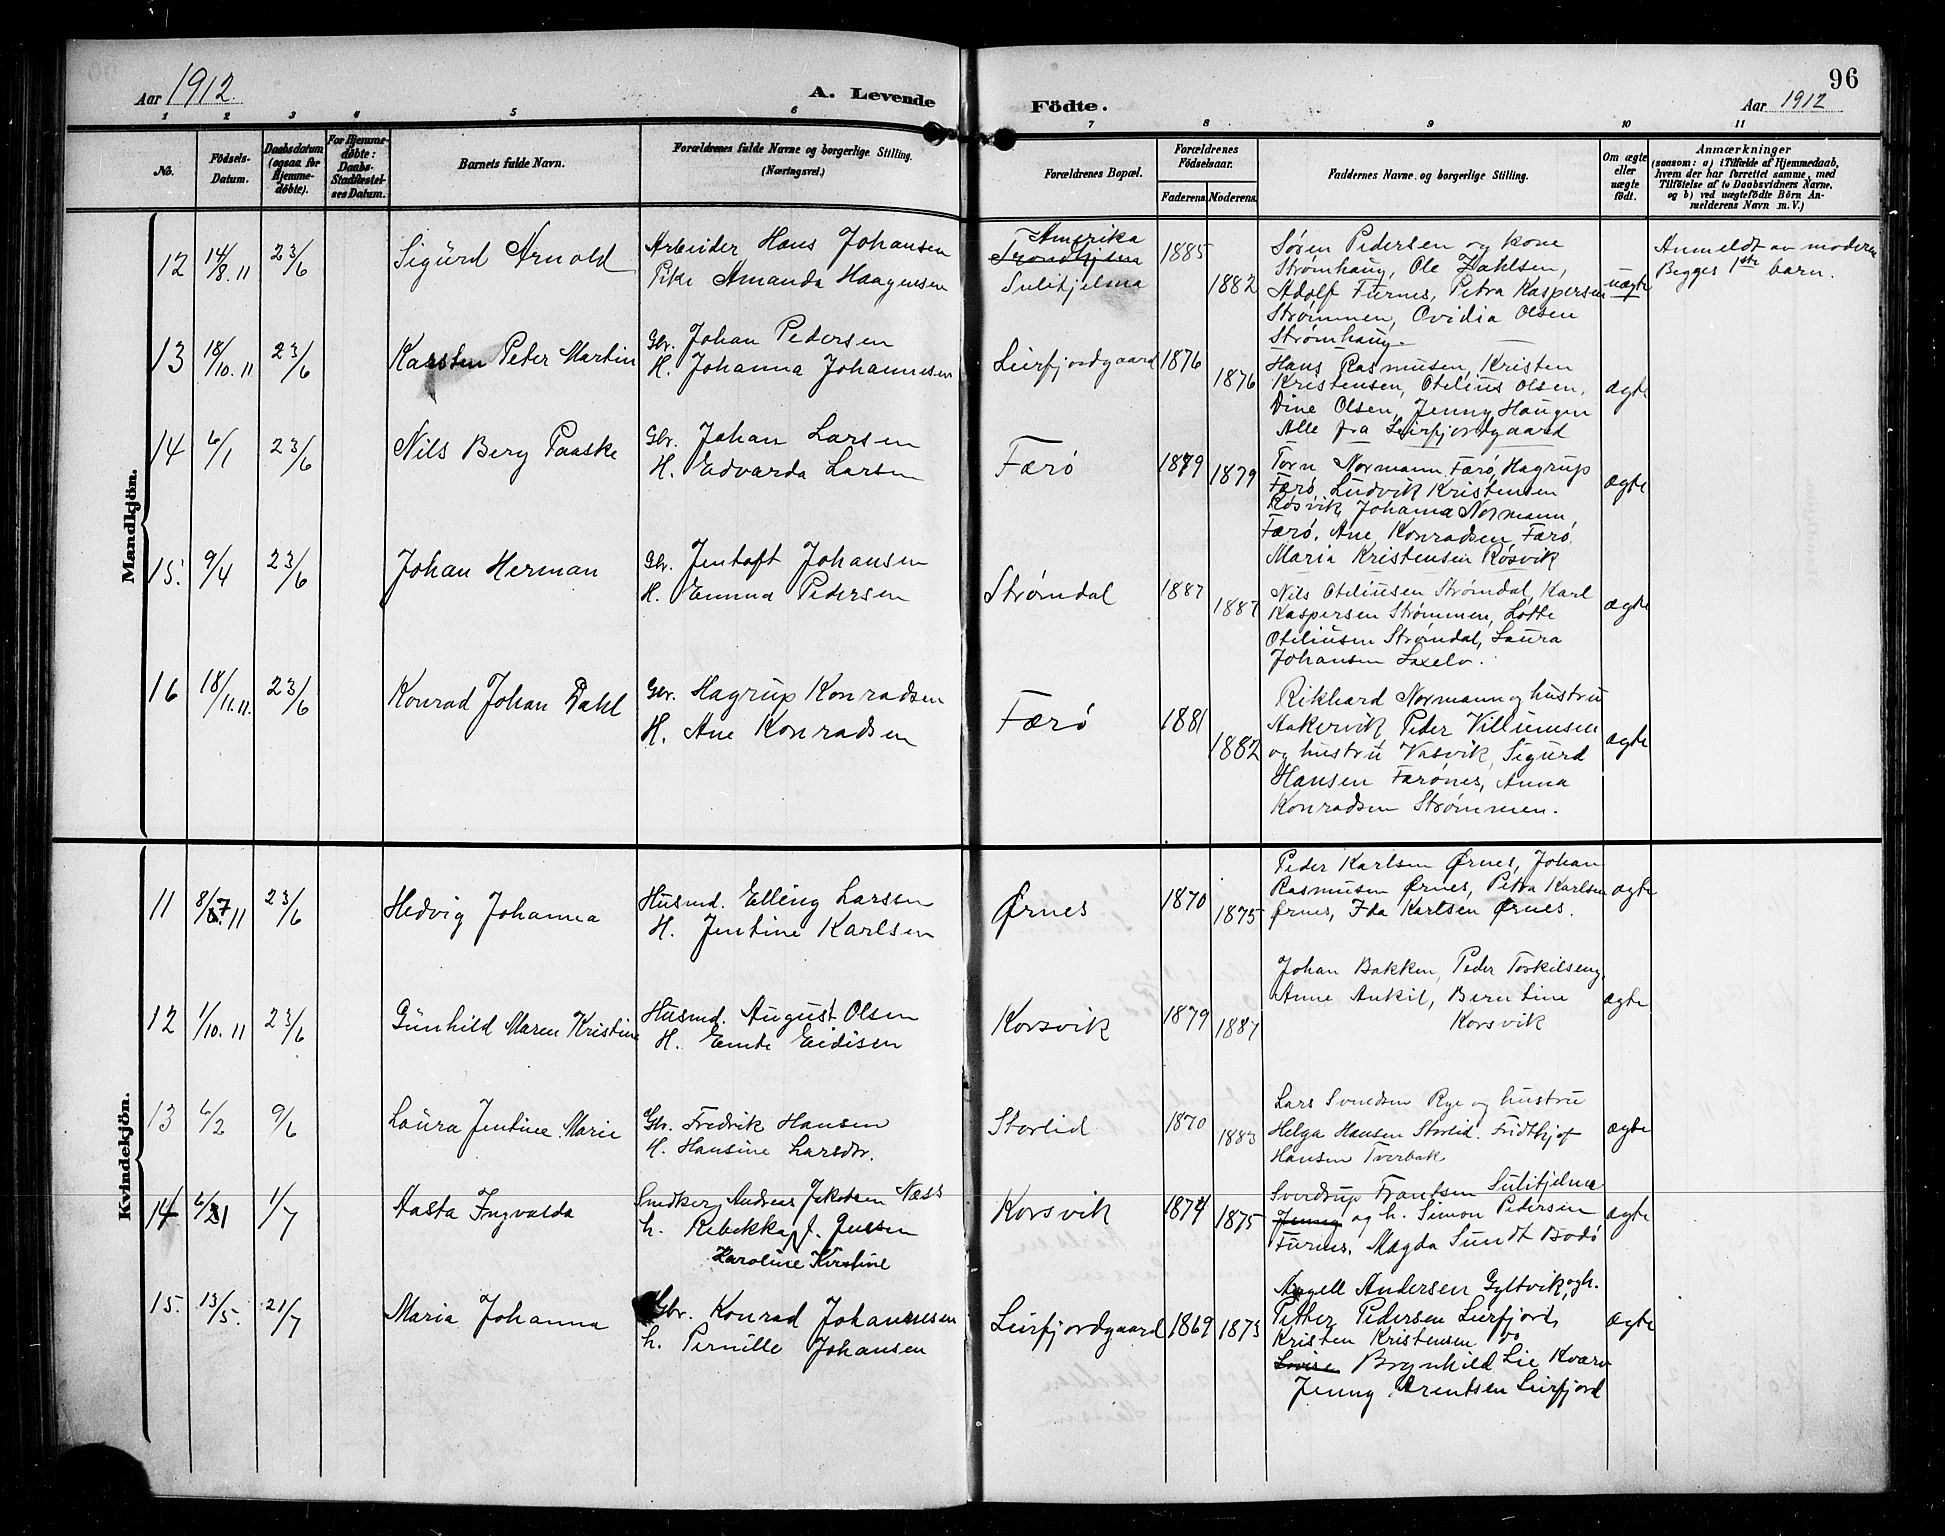 Aar 1912.
A. Levende
Födte.
96
Aar 1912
1 2 3 4 5 6 7 8 9 10 11
No.
Födsels-
Datum.
Daabsdatum
(ogsaa for
Hjemme-
döbte).
For Hjemme-
döbte:
Daabs-
Stadfæstel-
ses Datum.
Barnets fulde Navn.
Forældrenes fulde Navne og borgerlige Stilling.
(Næringsvei.)
Forældrenes Bopæl.
Forældrenes
Födselsaar.
Faderens.
Moderens.
Faddernes Navne og borgerlige Stilling.
Om ægte
eller
uægte
födt.
Anmærkninger
(saasom: a) i Tilfælde af Hjemmedaab,
hvem der har forrettet samme, med
Tilföielse af to Daabsvidners Navne,
og b) ved uægtefödte Börn An-
melderens Navn m. V.)
Mandkjön.
12 14/8.11 23/6 Sigurd Arnold
Arbeider Hans Johansen
Pike Amanda Haagensen
Amerika
Trondhjem
Sulitjelma
1885
1882
Søren Pedersen og kone
Strømhaug, Ole Dahlsen,
Adolf Furnes, Petra Kaspersen
Strømmen, Ovidia Olsen
Strømhaug.
uægte
Anmeldt av moderen
Begges 1ste barn.
13 18/10.11 23/6 Karsten Peter Martin
Gbr. Johan Pedersen
H. Johanna Johannesen
Leirfjordgaard
1876
1876
Hans Rasmusen, Kristen
Kristensen, Otelius Olsen,
Dine Olsen, Jenny Haugen
Alle fra Leirfjordgaard
ægte
14 6/1 23/6 Nils Berg Paaske
Gbr. Johan Larsen
H. Edvarda Larsen
Færø
1879
1879
Torn Normann Færø, Hagrup
Færø, Ludvik Kristensen
Røsvik, Johanna Normann,
Færø, Ane Konradsen Færø,
Maria Kristensen Røsvik
ægte
15. 9/4 23/6 Johan Herman
Gbr. Jentoft Johansen
H. Emma Pedersen
Strømdal
1887
1887
Nils Oteliusen Strømdal, Karl
Kaspersen Strømmen, Lotte
Oteliusen Strømdal, Laura
Johansen Laxelv.
ægte
16 18/11.11. 23/6 Konrad Johan Dahl
Gbr. Hagrup Konradsen
H. Ane Konradsen
Færø
1881
1882
Rikhard Normann og hustru
Aakervik, Peder Villumsen
og hustru Vasvik, Sigurd
Hansen Færønes, Anna
Konradsen Strømmen.
ægte
Kvindekjön.
11 8/7 11 23/6 Hedvig Johanna
Husmd. Elling Larsen
H. Jentine Karlsen
Ørnes
1870
1875
Peder Karlsen Ørnes, Johan
Rasmusen Ørnes, Petra Karlsen
Ørnes, Ida Karlsen Ørnes.
ægte
12 1/10.11 23/6 Gunhild Maren Kristine
Husmd. August Olsen
H. Emte Eidisen
Korsvik
1879
1887
Johan Bakken, Peder Torkilseng,
Anne Ankil, Berntine
Korsvik
ægte
13 6/2 9/6 Laura Jentine Marie
Gbr. Fredrik Hansen
H. Hansine Larsdtr.
Storlid
1870
1883
Lars Svendsen Rye og hustru
Helga Hansen Storlid. Fridthjof
Hansen Tverbak
ægte
14 6/1 1/7 Aasta Ingvalda
Smdker Andreas Jakobsen Næss
h. Rebekka f. Jensen
Karoline Kirstine
Korsvik
1874
1875
Sverdrup Frantsen Sulitjelma
Jenny og h. Simon Pedersen
Furnes, Magda Sundt Bodø
ægte
15. 13/5. 21/7 Maria Johanna
Gbr. Konrad Johannesen
h. Pernille Johansen
Leirfjordgaard
1869
1873
Angell Andersen Gyltvik, og h.
Pether Pedersen Leirfjord,
Kristen Kristensen do
Lovise Brynhild Lie Kvarv
Jenny Arentsen Leirfjord
ægte